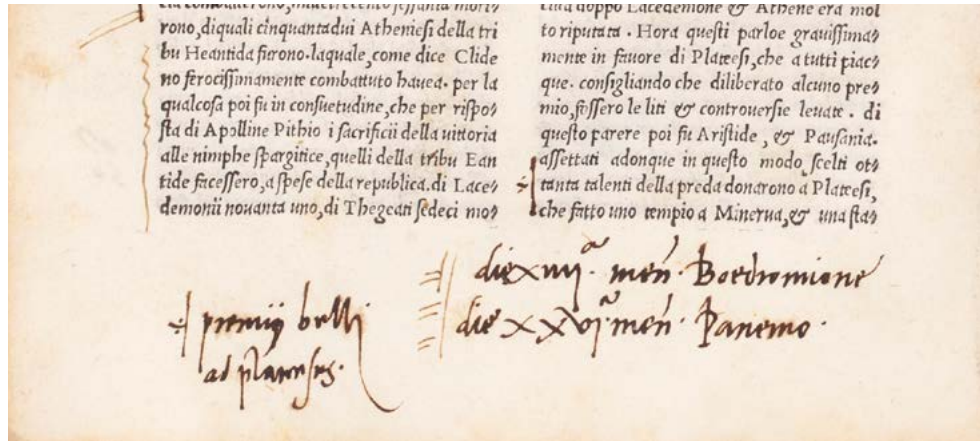 rono, diquali cinquantadui Atheniesi della tri
bu Heantida fiorono. laquale, come dice Clide
no ferocissimamente combattuto hauea. per la
qualcosa poi fu in consuetudine, che per rispo⸗
sta di Apolline Pithio i sacrificii della uittoria
alle nimphe spargitice, quelli della tribu Ean
tide facessero, a spese della republica. di Lace⸗
demonii nouanta uno, di Thegeati sedeci mo⸗
doppo Lacedemone & Athene era mol
to riputata. Hora questi parlo e grauissima⸗
mente in fauore di Plateesi, che a tutti piac⸗
que. consigliando che diliberato alcuno pre⸗
mio, fossero le liti & controuersie leuate. di
questo parere poi fu Aristide, & Pausania.
assettati adonque in questo modo, scelti ot⸗
tanta talenti della preda donarono a Plateesi,
che fatto uno tempio a Minerua, & una sta⸗
premij belli
ad
die men̄. Boedromione
die xxvjᵃ. men̄. Panemo.